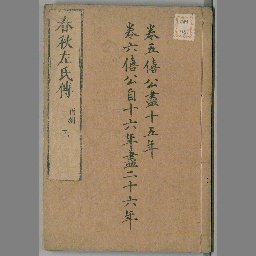 卷五僖公盡十五年
卷六僖公自十六年盡二十六年
春秋左氏傳